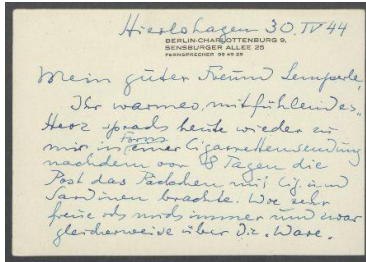 Hierlshagen 30. IV 44
BERLIN-CHARLOTTENBURG 9,
SENSBURGER ALLEE 25
FERNSPRECHER 99 49 25
Mein guter Freund Lemperle,
Ihr warmes, mitfühlendes
Herz sprach heute wieder zu
mir in Form einer Cigarrettensendung
nachdem vor 8 Tagen die
Post das Päckchen mit Cig. und
Sardinen brachte. Wie sehr
freue ich mich immer und zwar
gleicherweise über die „Ware“.